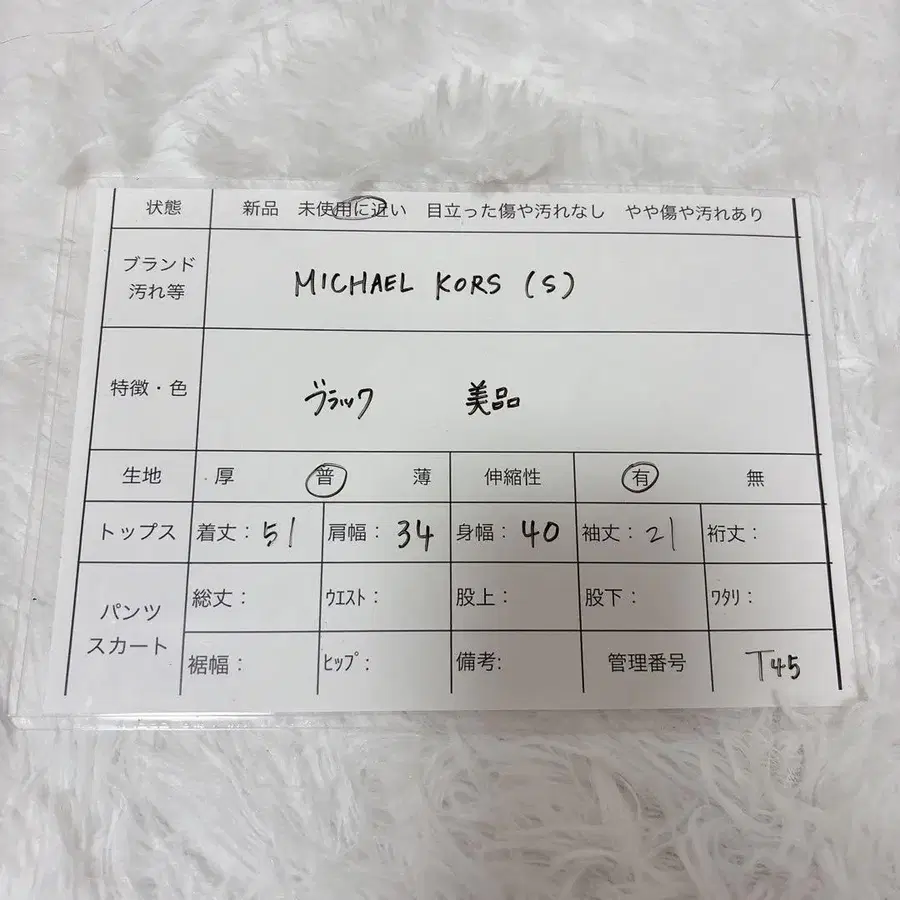 状態 新品 未使用に近い 目立った傷や汚れなし やや傷や汚れあり
ブランド
汚れ等
MICHAEL KORS (S)
特徴・色 ブラック 美品
生地 厚 普 薄 伸縮性 有 無
トップス 着丈：51 肩幅：34 身幅：40 袖丈：21 裄丈：
パンツ
スカート
総丈： ｳｴｽﾄ： 股上： 股下： ﾜﾀﾘ：
裾幅： ﾋｯﾌﾟ： 備考: 管理番号 T45